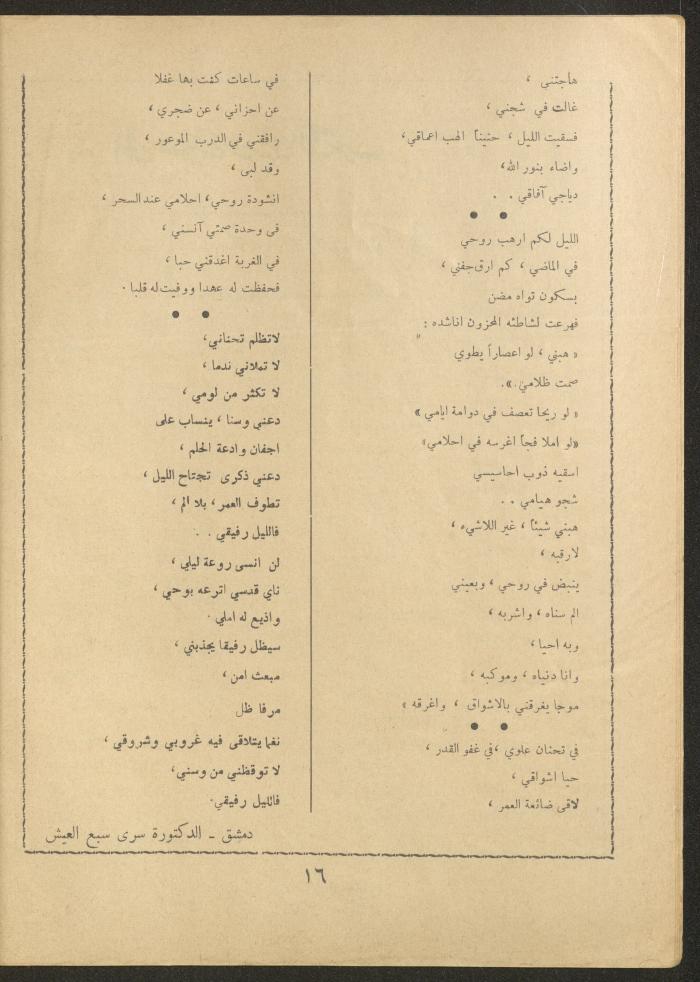 هاجتنى ،
غالت في شجني ،
فسقيت الليل ، حنيناً الهب اعماقي،
واضاء بنور الله،
دياجي آفاقي . .
● ●
الليل لكم ارهب روحي
في الماضي ، كم ارق جفني ،
بسكون تواه مضن
فهرعت لشاطئه المحزون اناشده :
« هبني ، لو اعصاراً يطوي
صمت ظلامي ».
« لو ريحا تعصف في دوامة ايامي »
«لو املا فجاً اغرسه في احلامي»
اسقيه ذوب احاسيسي
شجو هيامي . .
هبني شيئاً ، غير اللاشيء ،
لارقبه ،
ينبض في روحي ، وبعيني
الم سناه ، واشربه ،
وبه احيا ،
وانا دنياه ، وموكبه ،
موجا يغرقني بالاشواق ، واغرقه »
● ●
في تحنان علوي ،في غفو القدر ،
حيا اشواقي ،
لاقى ضائعة العمر ،
في ساعات كنت بها غفلا
عن احزاني ، عن ضجري ،
رافقني في الدرب الموعور ،
وقد لبى ،
انشودة روحي، احلامي عند السحر ،
فى وحدة صمتي آنسني ،
في الغربة اغدقني حبا ،
فحفظت له عهدا ووفيت له قلبا .
● ●
لاتظلم تحناني،
لا تملاني ندما ،
لا تكثر من لومي ،
دعنى وسنا ، ينساب على
اجفان وادعة الحلم ،
دعني ذكرى تجتاح الليل ،
تطوف العمر ، بلا الم ،
فالليل رفيقي . .
لن انسى روعة ليلي ،
ناي قدسي اترعه بوحي ،
واذيع له املي .
سيظل رفيقا يجذبني ،
مبعث امن ،
مرفا ظل
نغما يتلاقى فيه غروبي وشروقي ،
لا توقظني من وسني،
فالليل رفيقي.
دمشق ـ الدكتورة سرى سبع العيش
١٦